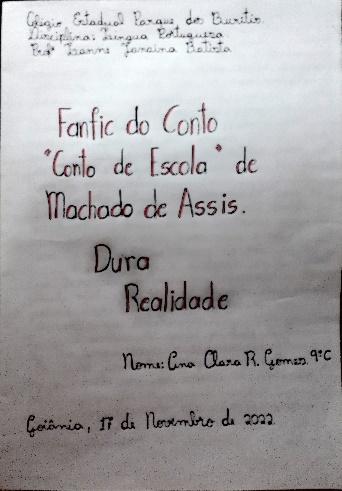 Colégio Estadual Parque dos Buritis
Disciplina: Língua Portuguesa
Profª Janaina Batista
Fanfic do Conto
"Conto de Escola" de
Machado de Assis.
Dura
Realidade
Nome: Ana Clara R. Gomes. 9°C
Goiânia, 17 de Novembro de 2022